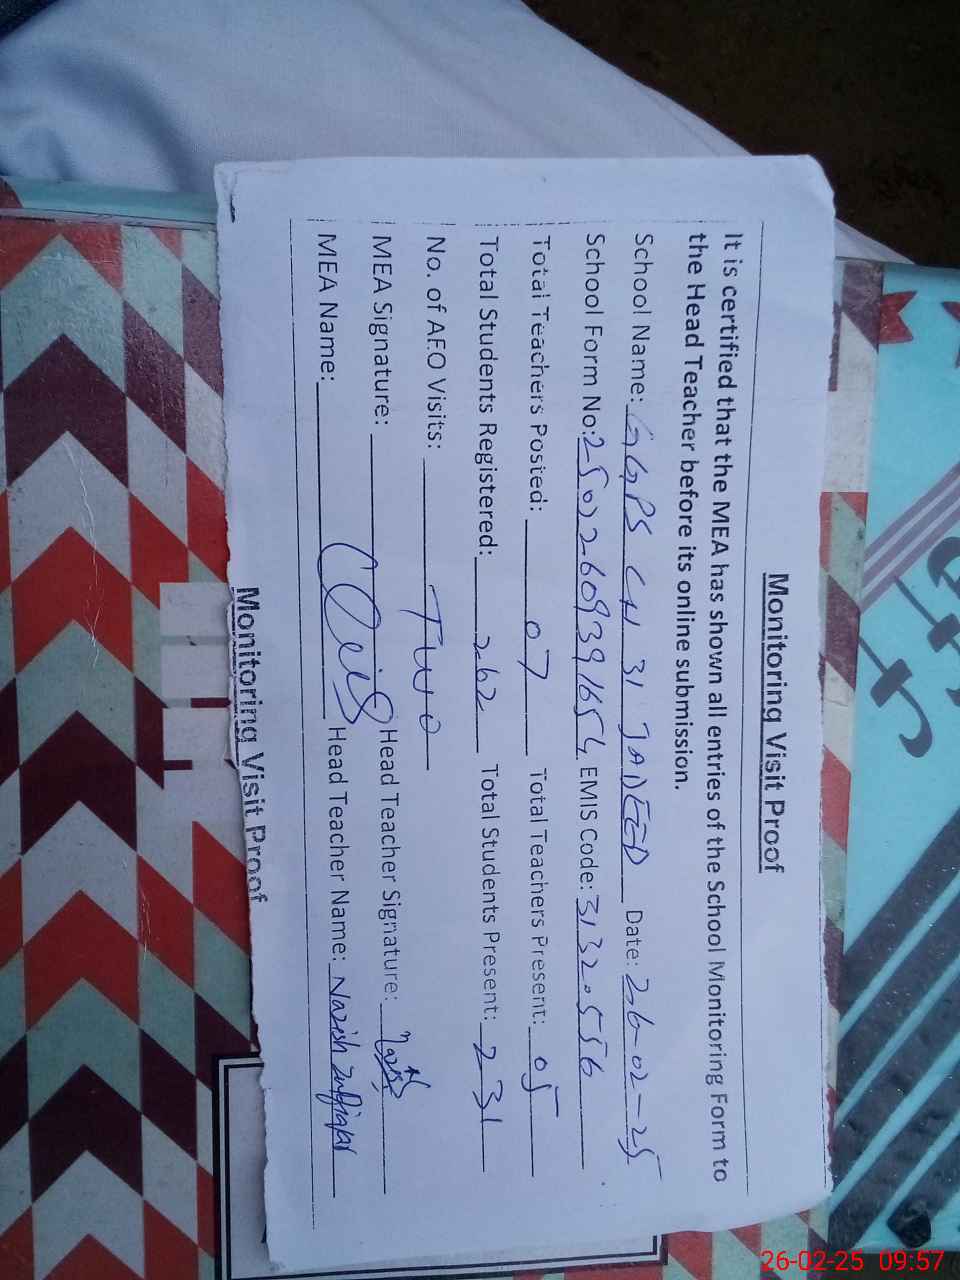 Monitoring Visit Proof
It is certified that the MEA has shown all entries of the School Monitoring Form to
the Head Teacher before its online submission.
School Name: GGPS CH 31 JADEED Date: 26-02-25
School Form No: EMIS Code: 31320556
Total Teachers Posted: 07 Total Teachers Present: 05
Total Students Registered: 262 Total Students Present: 231
No. of AEO Visits: Two
MEA Signature: Head Teacher Signature:
MEA Name: Head Teacher Name: Nazish Zulfiqar
Monitoring Visit Proof
26-02-25 09:57